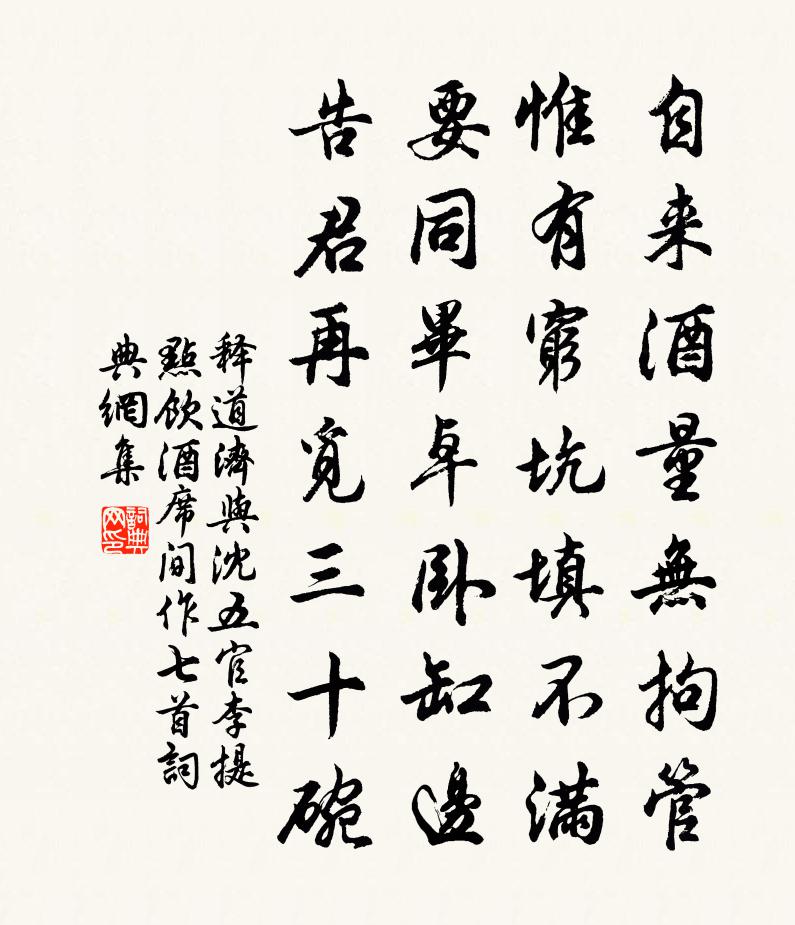 自来酒量無拘管
惟有窮坑填不滿
要同畢卓卧缸邊
告君再覓三十碗
释道濟與沈五官李提
點飲酒席间作七首詞
典網集
詞典网印